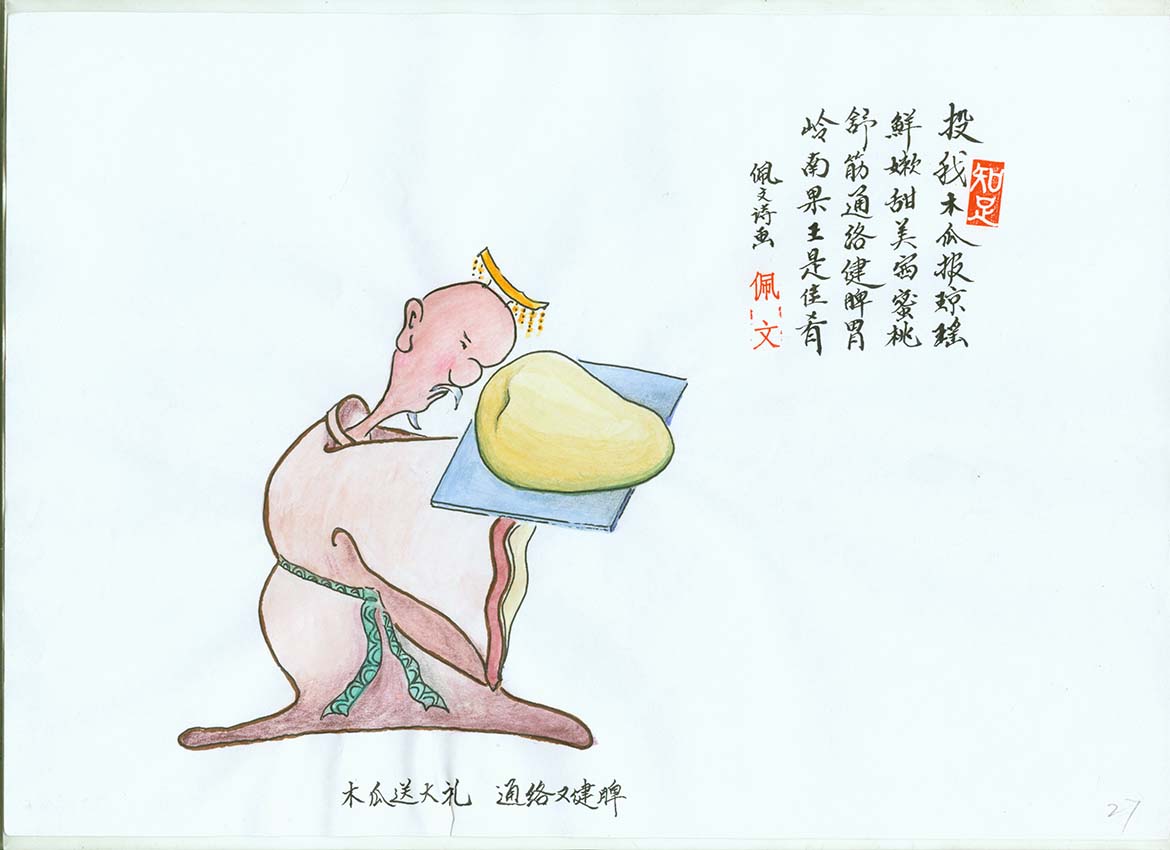 投我木瓜报琼瑶
知足
鮮嫩甜美赛蜜桃
舒筋通络健脾胃
岭南果王是佳肴
佩文诗画
佩文
木瓜送大礼 通络又健脾
27